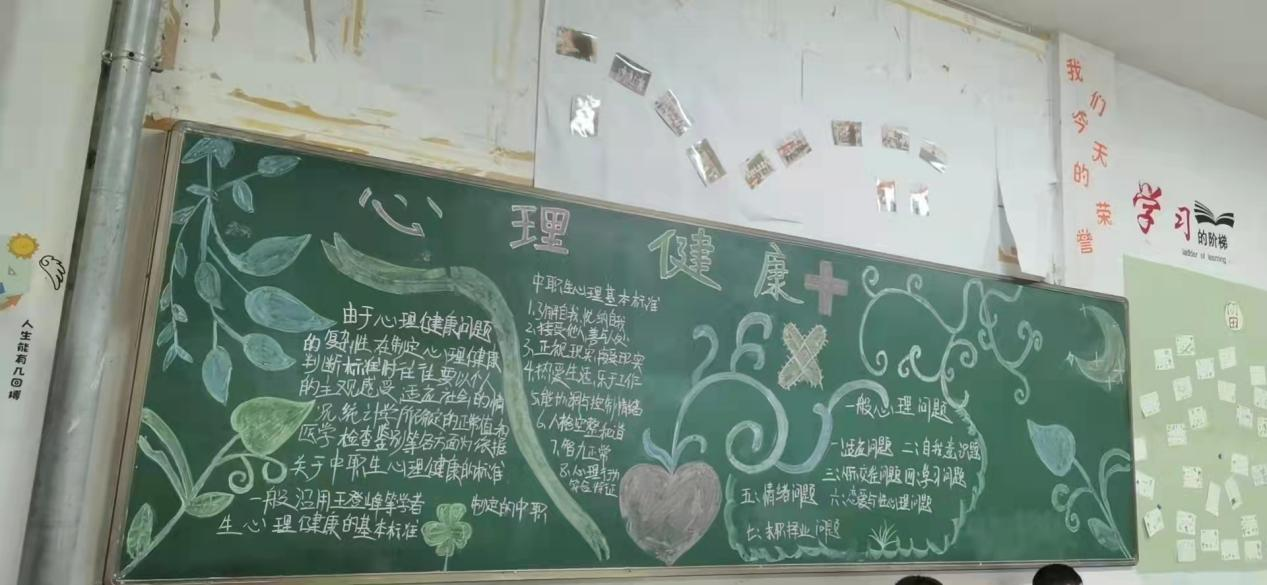 心理健康
由于心理健康问题
的复杂性,在制定心理健康
判断标准时往往要以个人
的主观感受,适应社会的情
况,统计学所确定的正常值和
医学检查鉴别等各方面为依据
关于中职生心理健康的标准
一般沿用王登峰等学者 制定的中职
生心理健康的基本标准
中职生心理基本标准
1.了解自我,悦纳自我
2.接受他人,善与人处
3.正视现实,接受现实
4.热爱生活,乐于工作
5.能协调与控制情绪
6.人格完整和谐
7.智力正常
8.心理行为
符合特征
一般心理问题
一:适应问题 二:自我意识问题
三:人际交往问题 四:学习问题
五:情绪问题 六:恋爱与性心理问题
七:求职择业问题
我们今天的荣誉
学习的阶梯
ladder of learning
人生能有几回搏